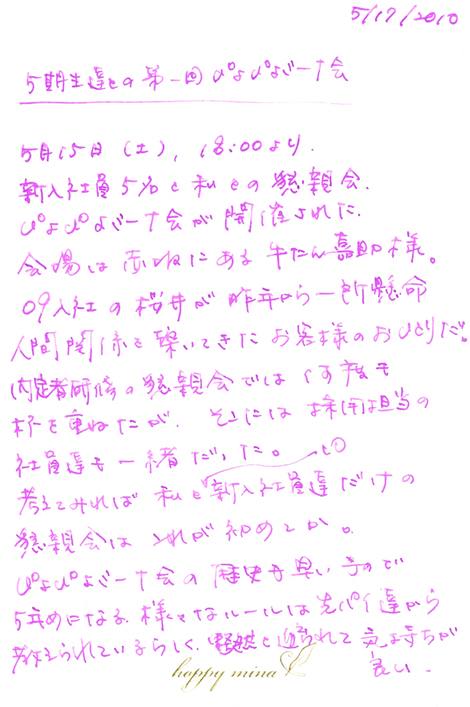 5/17/2010
5期生達との第一回ぴよぴよバーナ会
5月15日(土), 18:00より.
新入社員5名と私との懇親会.
ぴよぴよバーナ会が開催された.
会場は赤ばねにある牛たん嘉助様。
09入社の桜井が昨年から一所懸命
人間関係を築いてきたお客様のおひとりだ。
内定者研修の懇親会では何度も
杯を重ねたが. そこには採用担当の
社員達も一緒だった。 との
考えてみれば私と新入社員達だけの
懇親会はこれが初めてか。
ぴよぴよバーナ会の歴史も早いもので
5年めになる. 様々なルールは先パイ達から
教えられているらしく. 整然と進められて気持ちが
良い.
happy mina